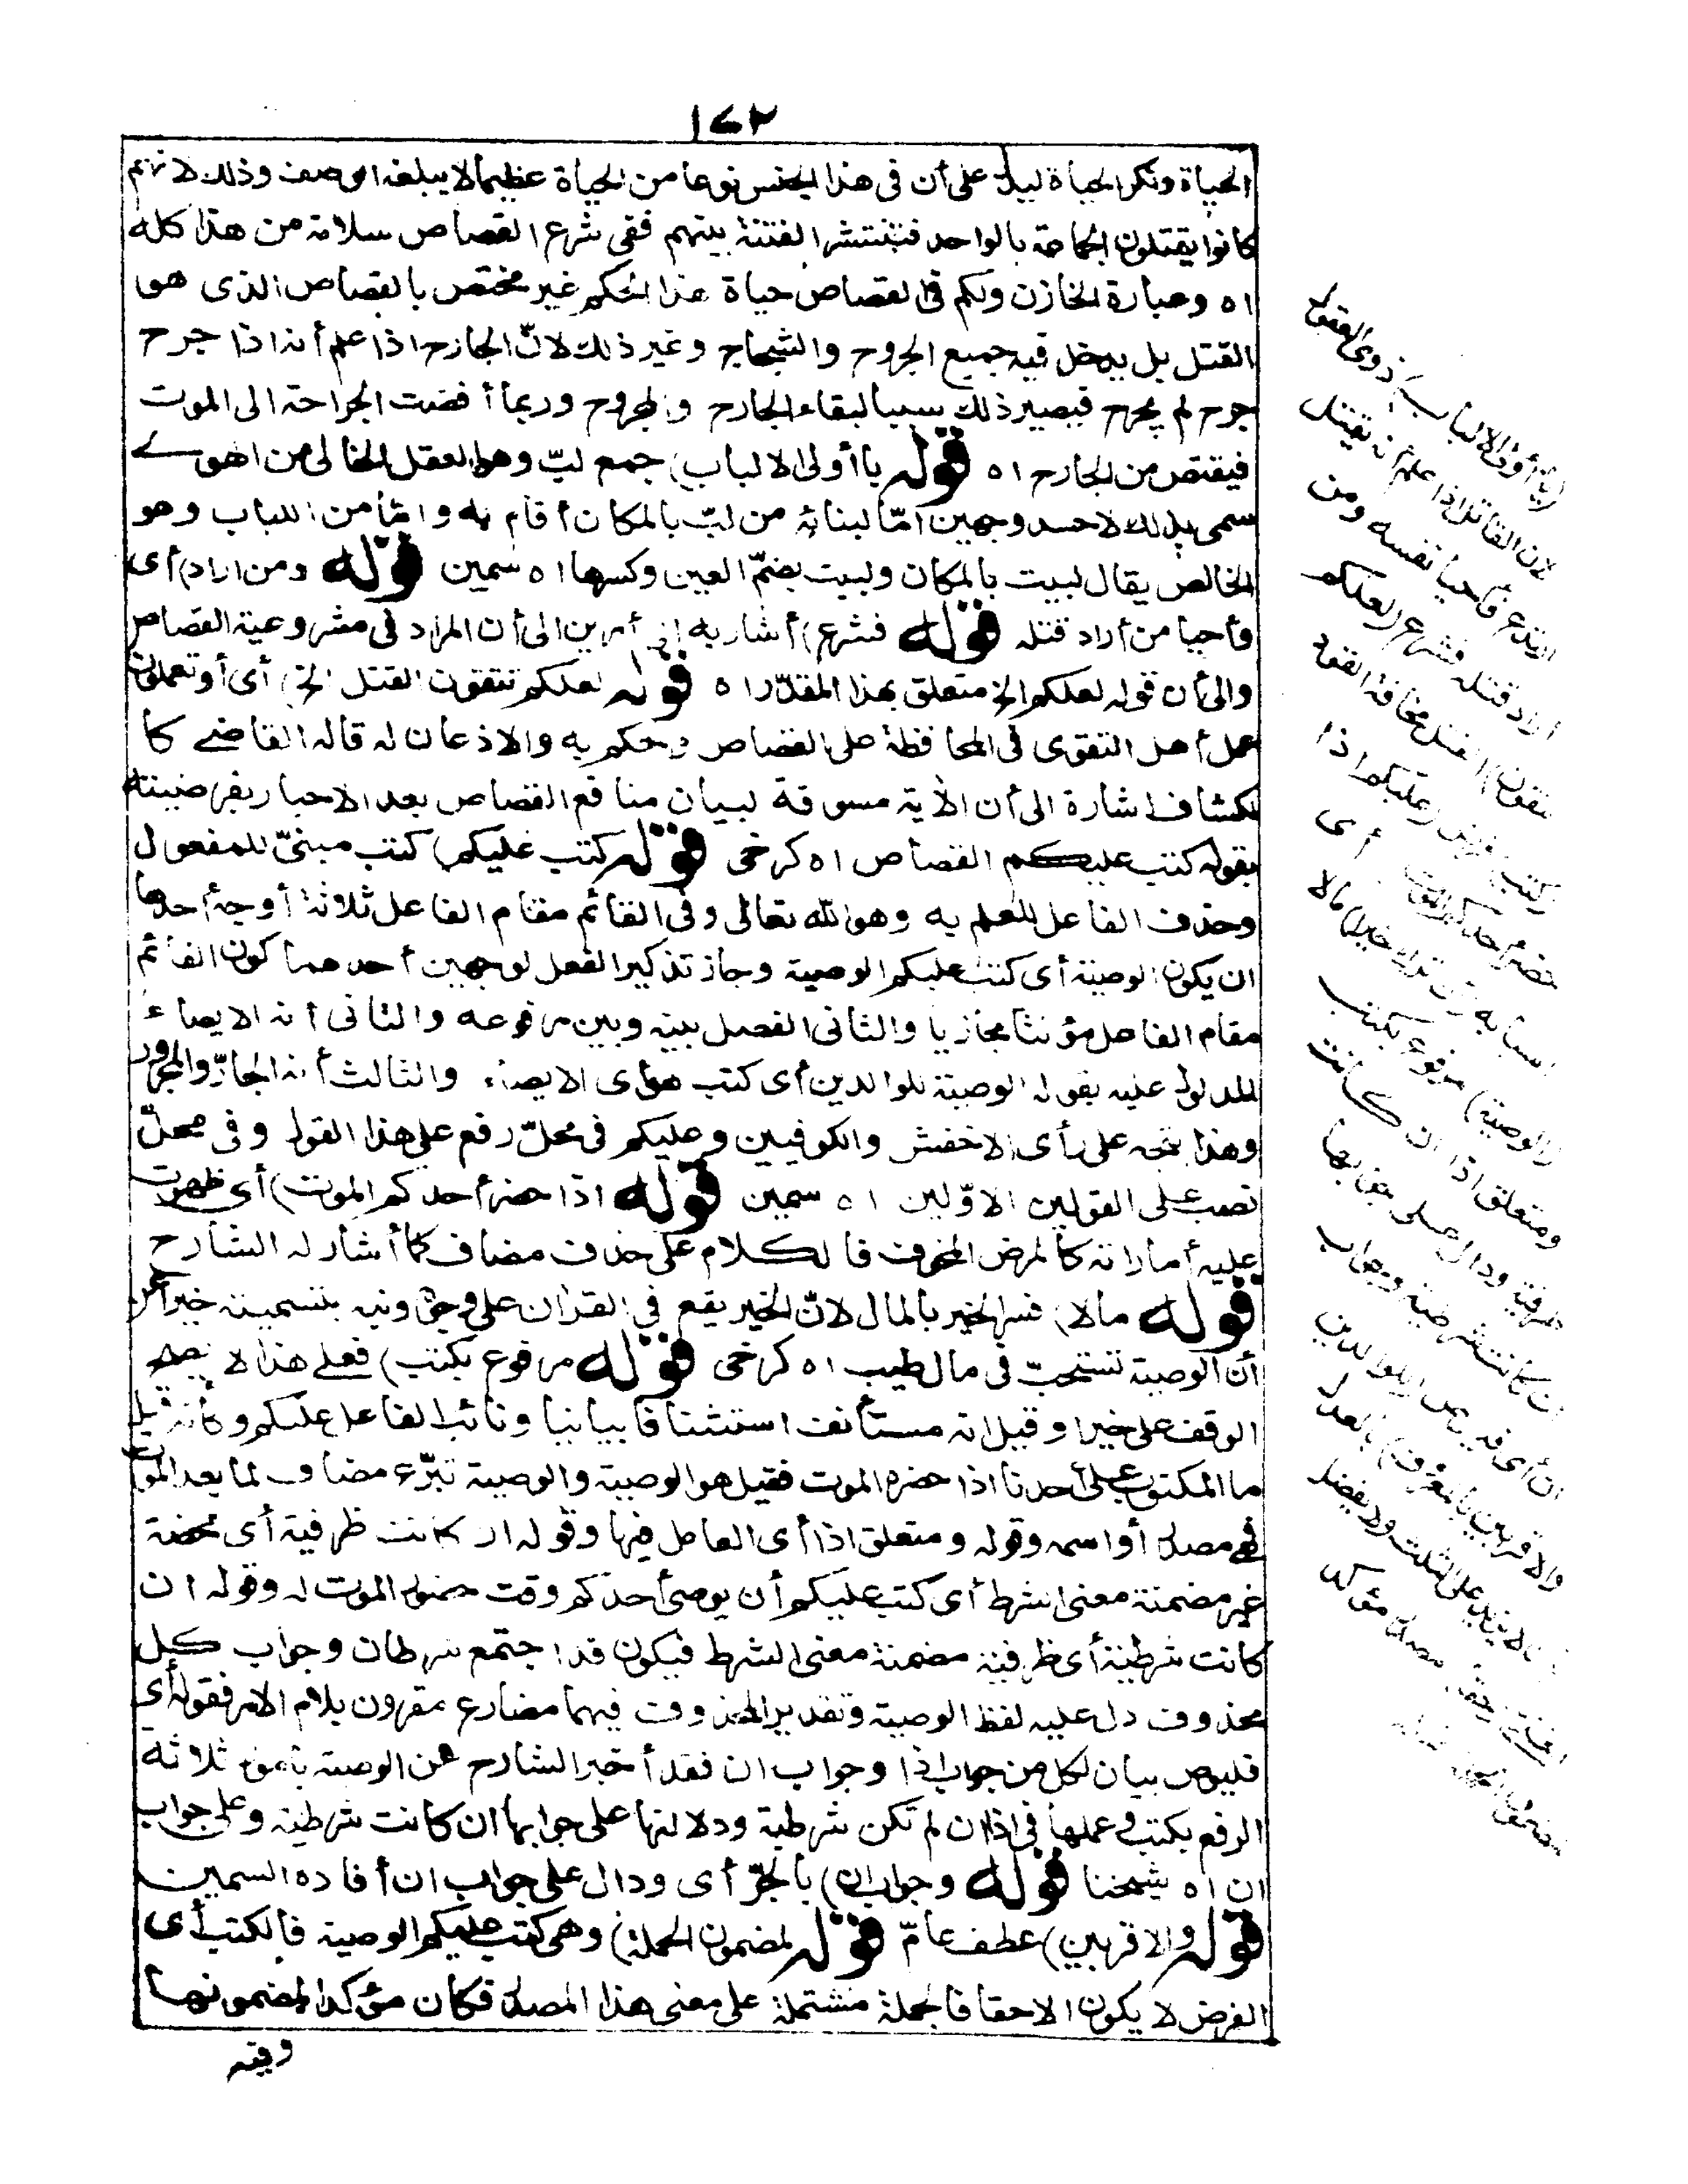 ١٤٢
الحياة ونكر الحياة ليدل على أن في هذا الجنس نوعا من الحياة عظيما لا يبلغه الوصف وذلك لانهم
كانوا يقتلون الجماعة بالواحد فتنتشر الفتنة بينهم ففي شرع القصاص سلامة من هذا كله
اه وعبارة الخازن ولكم في القصاص حياة هذا الحكم غير مختص بالقصاص الذى هو
القتل بل يدخل فيه جميع الجروح والشجاج وغير ذلك لانّ الجارح اذا علم أنه اذا جرح
جرح لم يجرح فيصير ذلك سببا لبقاء الجارح والمجروح وربما أفضت الجراحة الى الموت
فيقتص من الجارح اه قوله يا أولى الالباب) جمع لبّ وهو العقل الخالى من الهوى
سمى بذلك لاحد وجهين امّا لبنائه من لبّ بالمكان أقام به وامّا من اللباب وهو
الخالص يقال لببت بالمكان ولببت بضمّ العين وكسرها اه سمين قوله ومن اراد) أى
وأحيا من أراد قتله قوله فشرع) أشار به الى أمرين الى أن المراد فى مشروعية القصاص
والى أن قوله لعلكم الخ متعلق بهذا المقدّر اه قوله لعلكم تتقون القتل الخ) أى أو تعملون
عمل أهل التقوى فى المحافظة على القصاص وحكم به والاذعان له قاله القاضى كا
لكشاف اشارة الى أن الآية مسوقة لبيان منافع القصاص بعد الاخبار بفرضيته
بقوله كتب عليكم القصاص اه كرخى قوله كتب عليكم) كتب مبنىّ للمفعول
وحذف الفاعل للعلم به وهو الله تعالى وفى القائم مقام الفاعل ثلاثة أوجه أحدها
ان يكون الوصية أى كتب عليكم الوصية وجاز تذكير الفعل لوجهين أحدهما كون القائم
مقام الفاعل مؤنثا مجازيا والثانى الفصل بينه وبين مرفوعه والثانى أنه الايصاء
المدلول عليه بقوله الوصية للوالدين أى كتب هو أى الايصاء والثالث أنه الجارّ والمجرور
وهذا يتجه على رأى الاخفش والكوفيين وعليكم فى محلّ رفع على هذا القول وفى محلّ
نصب على القولين الاوّلين اه سمين قوله اذا حضر أحدكم الموت) أى ظهرت
عليه أماراته كالمرض المخوف فالكلام على حذف مضاف كما أشار له الشارح
قوله مالا) فسر الخير بالمال لانّ الخير يقع فى القرآن على وجوه ونبه بتسميته خيرا على
أن الوصية تستحبّ فى مال طيب اه كرخى قوله مرفوع بكتب) فعلى هذا لا يصح
الوقف على خيرا وقيل انه مستأنف استئنافا بيانيا ونائب الفاعل عليكم وكأنه قيل
ما المكتوب على أحدنا اذا حضره الموت فقيل هو الوصية والوصية تبرّع مضاف لما بعد الموت
فهى مصدر أو اسمه وقوله ومتعلق اذا أى العامل فيها وقوله ان كانت ظرفية أى محضة
غير مضمنة معنى الشرط أى كتب عليكم أن يوصى أحدكم وقت حضور الموت له وقوله ان
كانت شرطية أى ظرفية مضمنة معنى الشرط فيكون قد اجتمع شرطان وجواب كل
محذوف دل عليه لفظ الوصية وتقدير المحذوف فيهما مضارع مقرون بلام الامر فقوله أى
فليوص بيان لكل من جواب اذا وجواب ان فقد أخبر الشارح عن الوصية بأمور ثلاثة
الرفع بكتب وعملها فى اذا ان لم تكن شرطية ودلالتها على جوابها ان كانت شرطية وعلى جواب
ان اه شيخنا قوله وجواب ان) بالجرّ أى ودال على جواب ان أفاده السمين
قوله والاقربين) عطف عامّ قوله لمضمون الجملة) وهى كتب عليكم الوصية فالكتب أى
الفرض لا يكون الا حقا فالجملة مشتملة على معنى هذا المصدر فكان مؤكدا لمضمونها
وفيه
(يا أولى الالباب) ذوى العقول
لان القاتل اذا علم أنه يقتل
ارتدع فأحيا نفسه ومن
أراد قتله فشرع (لعلكم
تتقون) القتل مخافة القود
(كتب) فرض (عليكم اذا
حضر أحدكم الموت) أى
أسبابه (ان ترك خيرا) مالا
(الوصية) مرفوع بكتب
ومتعلق اذا ان كانت
ظرفية ودال على جوابها
ان كانت شرطية وجواب
ان أى فليوص (للوالدين
والاقربين بالمعروف) بالعدل
لا يزيد على الثلث ولا يفضل
الغنى (حقا) مصدر مؤكد
لمضمون الجملة قبله